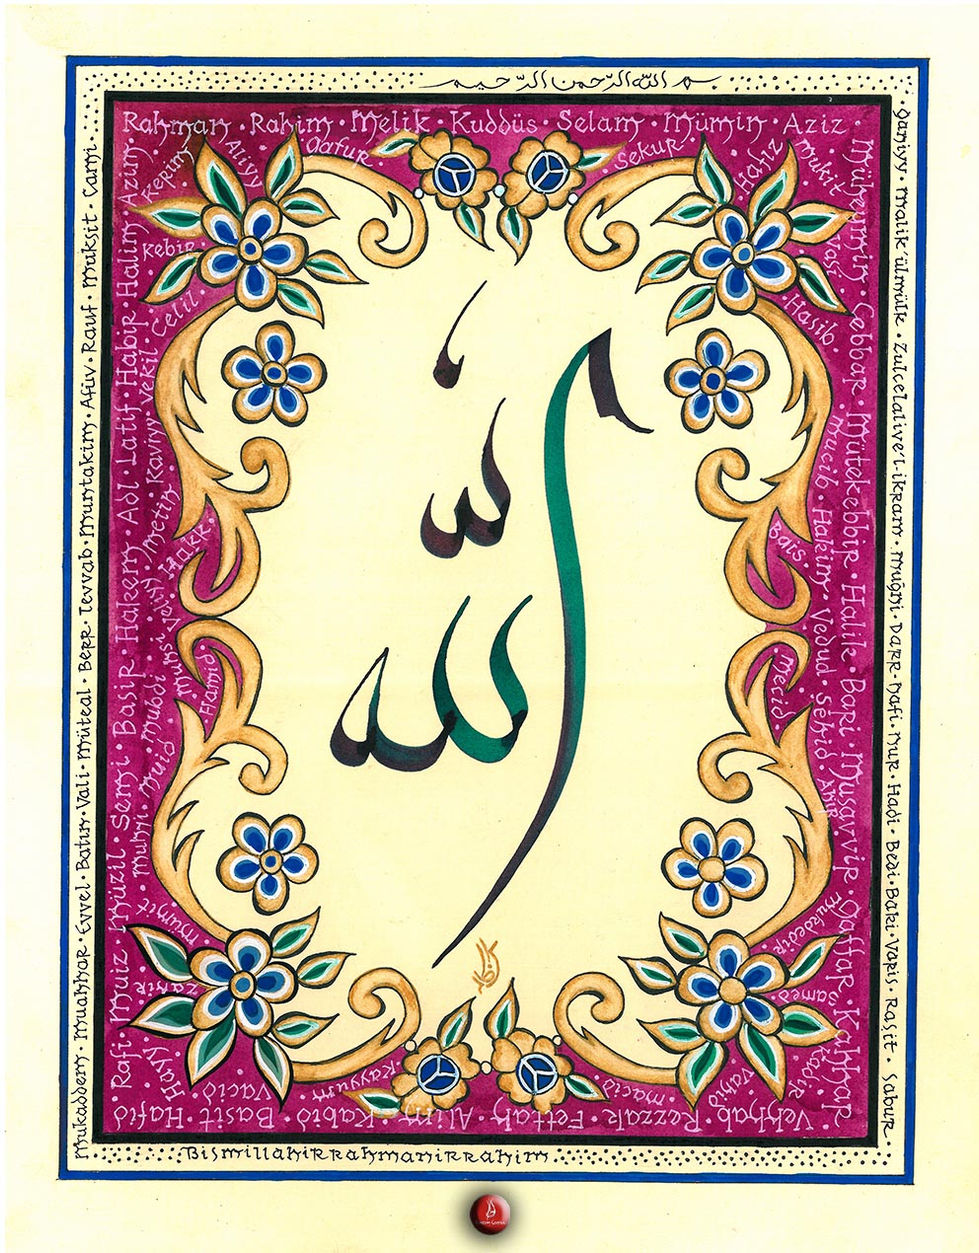 بسم الله الرحمن الرحيم
Rahman · Rahim · Melik · Kuddüs · Selam · Mümin · Aziz ·
Müheymin · Cebbar · Mütekebbir · Halik · Bari · Musavvir · Gaffar · Kahhar
Vehhab · Rezzak · Fettah · Alim · Kabid · Basit · Hafid
Rafi · Muiz · Müzil · Semi · Basir · Hakem · Adl · Latif · Habir · Halim · Azim ·
Gafur
Sekur
Aliyy
Kebir
Hafiz
Mukit
Hasib
Celil
Kerim
Mucib · Vasi
Hakim · Vedud
Mecid
Bais
Şehid
Hakk
Vekil · Kaviyy · Metin
Veliyy
Hamid
Muhsi · Mubdi · Muid · Muhyi
Mumit
Hayy
Kayyum
Vacid
Macid
Vahid
Samed
Kadir
Muktedir
Mukaddem · Muahhar · Evvel · Batın · Vali · Müteal · Berr · Tevvab · Muntakim · Afüv · Rauf · Muksit · Cami ·
Ganiyy · Malik'ülmülk · Zulcelalive'l-ikram · Muğni · Darr · Nafi · Nur · Hadi · Bedi · Baki · Varis · Raşit · Sabur ·
Bismillahirrahmanirrahim
الله